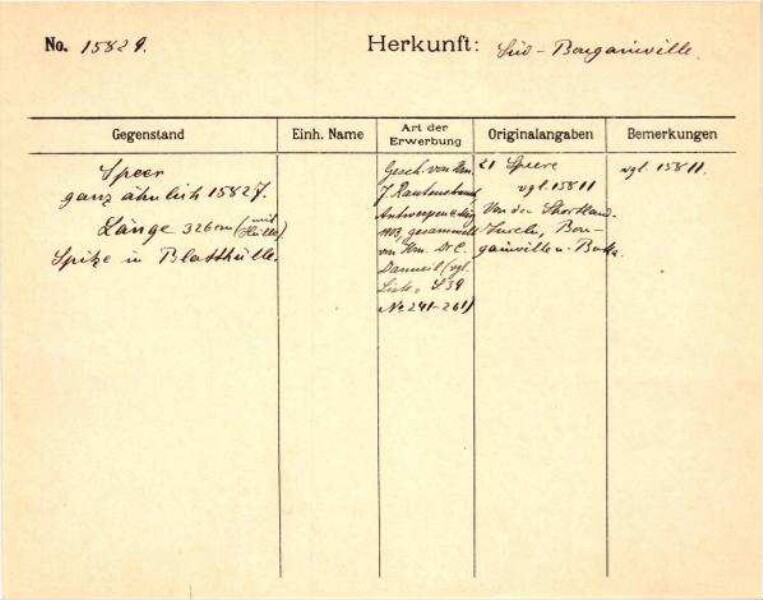 No. 15829.
Herkunft: Süd-Bougainville.
Gegenstand
Einh. Name
Art der Erwerbung
Originalangaben
Bemerkungen
Speer
ganz ähnlich 15827.
Länge 326cm (mit Hülle).
Spitze in Blatthülle.
Gesch. von Hrn.
J. Rautenstrauch,
Antwerpen
1903, gesammelt
von Hrn. Dr C.
Danneil (vgl.
Liste, S 39
No 241-261)
21 Speere
vgl. 15811
Von den Shortland-
Inseln, Bou-
gainville u. Buka.
vgl. 15811.